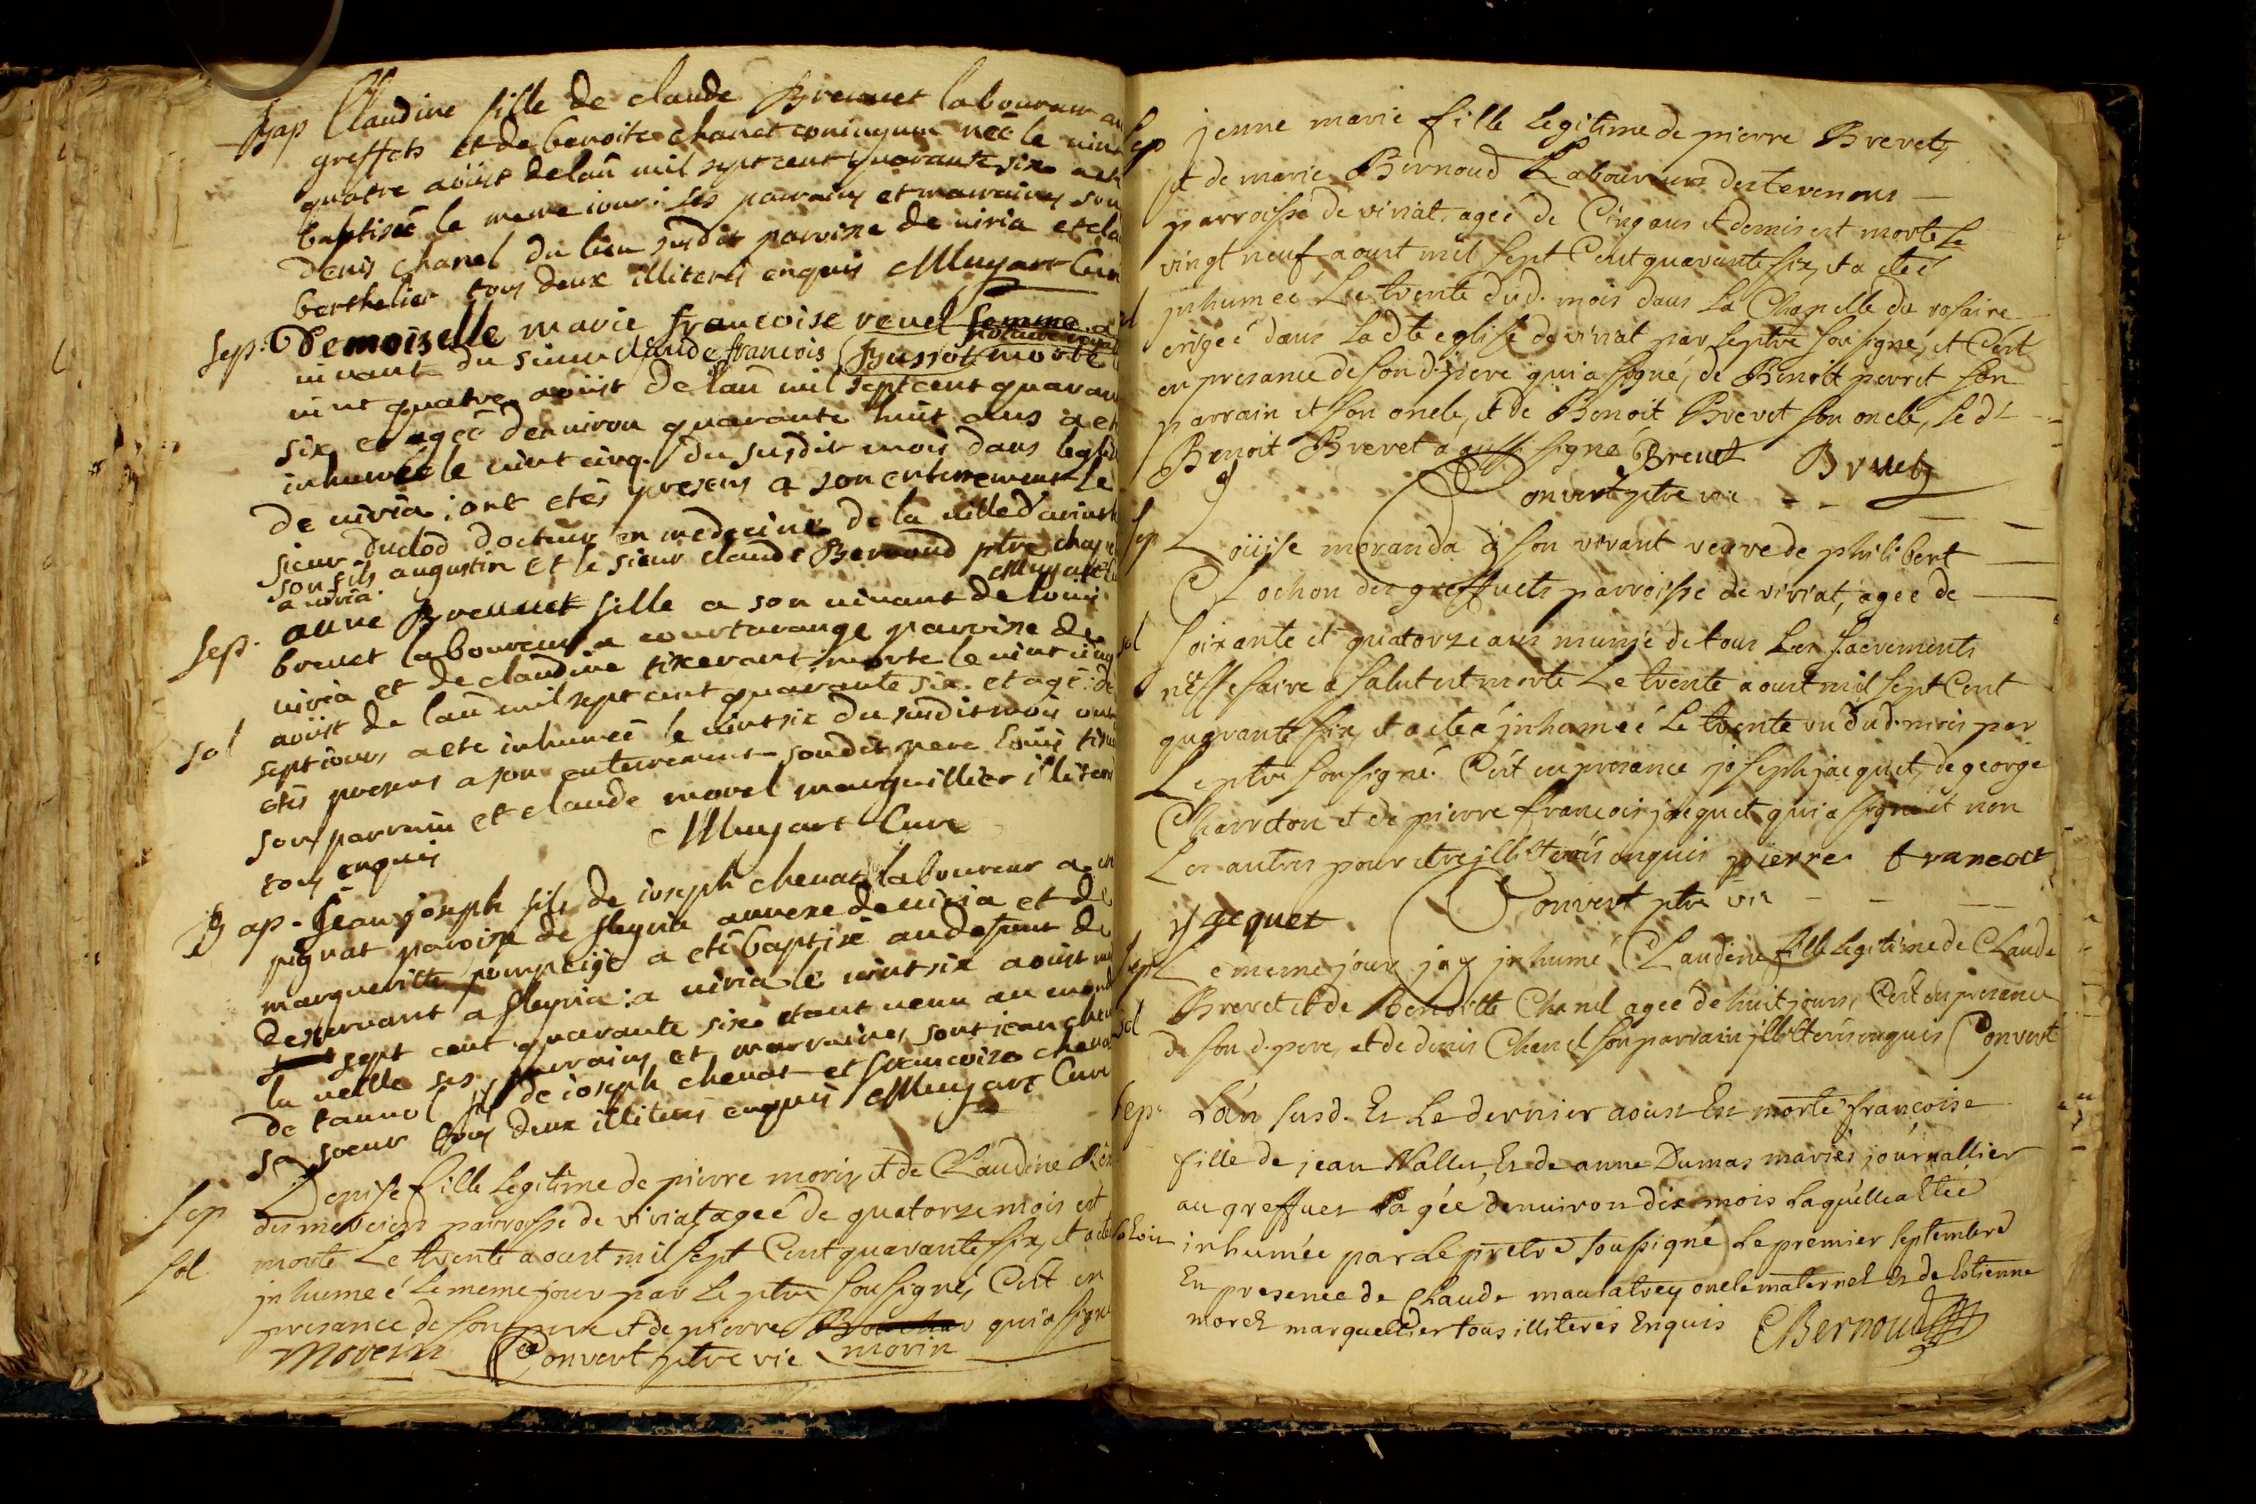 Bap Claudine fille de claude Brevuet laboureur au
greffets et de benoite chanet coniugum néé le vint
quatre aoüst de lan mil sept cent quarante six a ete
baptiséé le meme iour: ses parrains et marraines sont
denis chanel du lieu susdit paroisse de viria et cla
berthelier tous deux illiterés enquis Muyart Curé
Sep. Demoiselle marie françoise revel femme a
vivant du sieur claude francois notaire royal morte
vint quatre aoüst de lan mil sept cent quaran
six et agéé denviron quarante huit ans a eté
inhuméé le vint cinq du susdit mois dans leglise
de viria; ont etés presens a son enterrement le
sieur duclod docteur en medecine de la ville
son fils augustin et le sieur claude Bernoud ptre
a viria. Muyart
Sep. anne Brevuet fille a son vivant de louis
brevet laboureur a courtarange paroisse de
viria et de claudine tixerant morte le vint cinq
sol aoüst de lan mil sept cent quarante six et agé: de
sept iours a ete inhuméé le vint six du susdit mois ont
etés presens a son enterrement sondit pere louis
son parrain et claude morel marguillier illiterés
tous enquis Muyart Curé
Bap. Jean joseph fils de ioseph chenat laboureur a
pignat paroisse de fleyria annexe de viria et de
marguerite a eté baptisé au defaut de
deservant a fleyria: a viria le vint six aoüst mil
sept cent quarante six etant venu au monde
la veille ses parrains et marraines sont iean
de tannol fils de ioseph chenat et francoise chenat
sa soeur tous deux illiterés enquis Muyart Curé
Sep Denise fille legitime de pierre morin et de Claudine
des merciers parroisse de viriat, ageé de quatorze mois est
sol morte le trente aoust mil sept Cent quarante six, et a eteé
jnhumeé le meme jour par le ptre soussigné, C'est en
presance de son pere et de pierre morin qui a signé
Morein Convert ptre vic
Sep jenne marie fille legitime de pierre Brevet,
et de marie Bernoud Laboureurs des tevenons
parroisse de viriat, ageé de Cinq ans et demis est morte Le
vingt neuf aoust mil sept Cent quarante six, et a eteé
jnhumeé Le trente dud. mois dans La Chapelle du rosaire
erigeé dans Ladte eglise de viriat par Leptre soussigné, et C'est
en presance de son d. pere qui a signé, de Benoit perret son
parrain et son oncle, et de Benoit Brevet son oncle, Led.
Benoit Brevet a aussi signé Brevet Brevet
Convert ptre vic
Sep Loüise moranda a son vivant veuve de philibert
Cochon des greffuets parroisse de viriat, ageé de
sol soixante et quatorze ans munie de tous Les sacrements
nessesaire a salut est morte Le trente aoust mil sept Cent
quarante six, et a eteé jnhumeé Le trente un dud. mois par
Leptre soussigné. C'est en presance joseph jacquet, de george
Charreton et de pierre francois jacquet qui a signé et non
Les autres pour etre jllitterés enquis pierre francoct
jacquet Convert ptre vic
Sep Le meme jour jay jnhumé Claudine fille legitime de Claude
Brevet et de Benoitte Chanel ageé de huit jours, C'est en presance
sol de son d. pere, et de denis Chanel son parrain jllitterés enquis Convert
Sep. Lán susd. Et Le dernier aoust Est morte françoise
fille de jean Vallet, Et de anne Dumas mariés journallier
au greffuet ágéé dénuiron dix mois Laquelle a Eteé
inhumée par Le prêtre soussigné Le premier septembre
En presence de claude maulatrey oncle maternel Et de Estienne
morel marguellier tous illiterés Enquis CBernoud